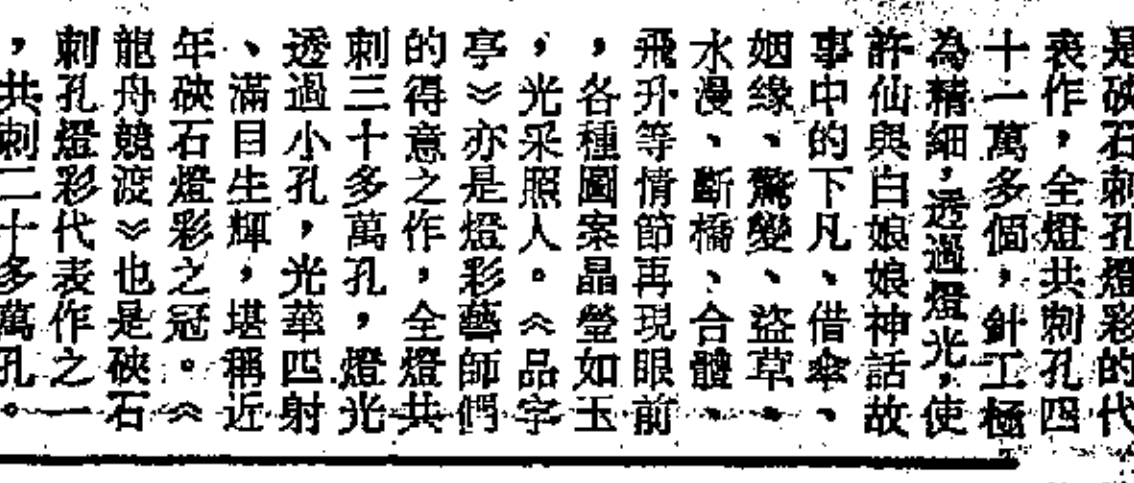 是硤石刺孔燈彩的代
表作，全燈共刺孔四
十一萬多個，針工極
為精細，透過燈光，使
許仙與白娘娘神話故
事中的下凡、借傘、
姻緣、驚變、盜草、
水漫、斷橋、合體、
飛升等情節再現眼前
，各種圖案晶瑩如玉
，光采照人。《品字
亭》亦是燈彩藝師們
的得意之作，全燈共
刺三十多萬孔，燈光
透過小孔，光華四射
、滿目生輝，堪稱近
年硤石燈彩之冠。《
龍舟競渡》也是硤石
刺孔燈彩代表作之一
，共刺二十多萬孔。